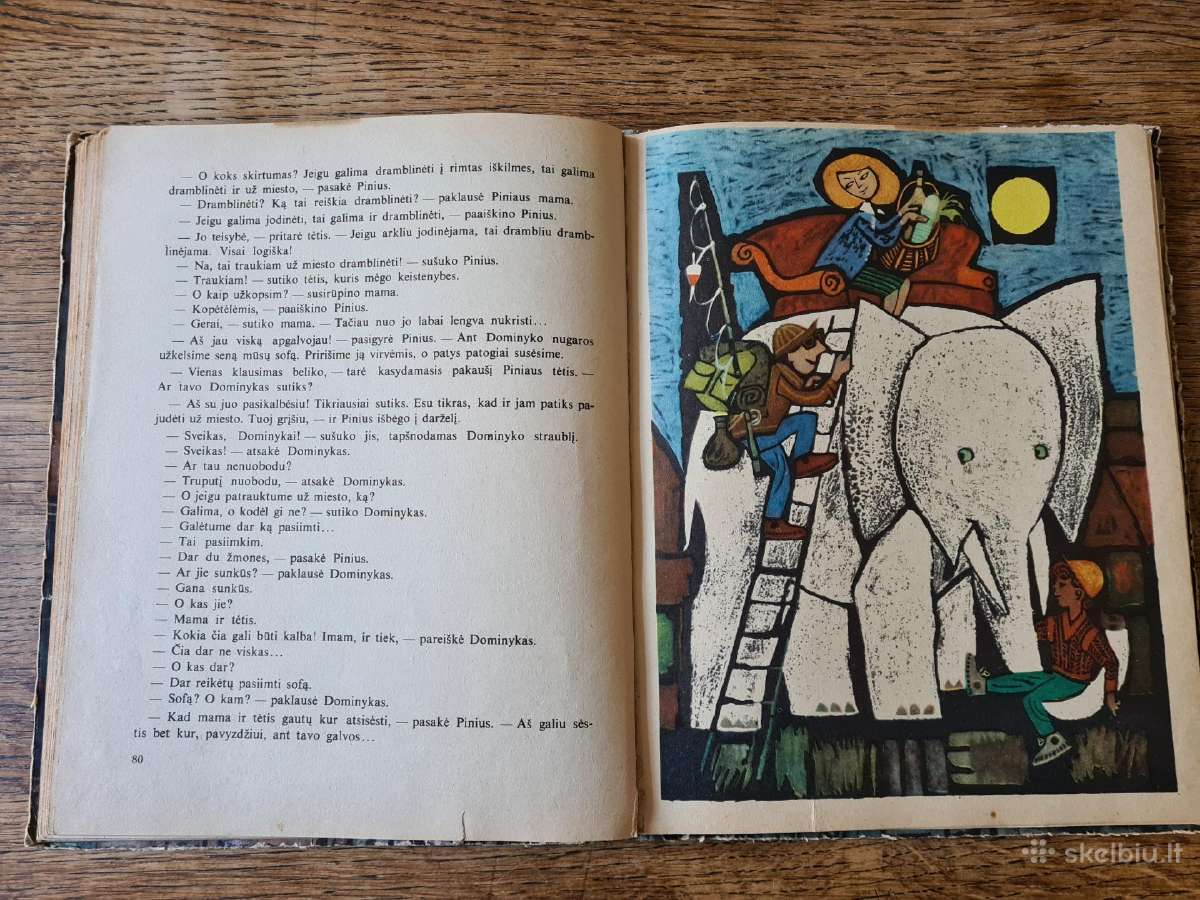 — O koks skirtumas? Jeigu galima dramblinėti į rimtas iškilmes, tai galima
dramblinėti ir už miesto, — pasakė Pinius.
— Dramblinėti? Ką tai reiškia dramblinėti? — paklausė Piniaus mama.
— Jeigu galima jodinėti, tai galima ir dramblinėti, — paaiškino Pinius.
— Jo teisybė, — pritarė tėtis. — Jeigu arkliu jodinėjama, tai drambliu dramb-
linėjama. Visai logiška!
— Na, tai traukiam už miesto dramblinėti! — sušuko Pinius.
— Traukiam! — sutiko tėtis, kuris mėgo keistenybes.
— O kaip užkopsim? — susirūpino mama.
— Kopėtėlėmis, — paaiškino Pinius.
— Gerai, — sutiko mama. — Tačiau nuo jo labai lengva nukristi...
— Aš jau viską apgalvojau! — pasigyrė Pinius. — Ant Dominyko nugaros
užkelsime seną mūsų sofą. Pririšime ją virvėmis, o patys patogiai susėsime.
— Vienas klausimas beliko, — tarė kasydamasis pakaušį Piniaus tėtis. —
Ar tavo Dominykas sutiks?
— Aš su juo pasikalbėsiu! Tikriausiai sutiks. Esu tikras, kad ir jam patiks pa-
judėti už miesto. Tuoj grįšiu, — ir Pinius išbėgo į darželį.
— Sveikas, Dominykai! — sušuko jis, tapšnodamas Dominyko straublį.
— Sveikas! — atsakė Dominykas.
— Ar tau nenuobodu?
— Truputį nuobodu, — atsakė Dominykas.
— O jeigu patrauktume už miesto, ką?
— Galima, o kodėl gi ne? — sutiko Dominykas.
— Galėtume dar ką pasiimti...
— Tai pasiimkim.
— Dar du žmones, — pasakė Pinius.
— Ar jie sunkūs? — paklausė Dominykas.
— Gana sunkūs.
— O kas jie?
— Mama ir tėtis.
— Kokia čia gali būti kalba! Imam, ir tiek, — pareiškė Dominykas.
— Čia dar ne viskas...
— O kas dar?
— Dar reikėtų pasiimti sofą.
— Sofą? O kam? — paklausė Dominykas.
— Kad mama ir tėtis gautų kur atsisėsti, — pasakė Pinius. — Aš galiu sės-
tis bet kur, pavyzdžiui, ant tavo galvos...
80
skelbiu.lt